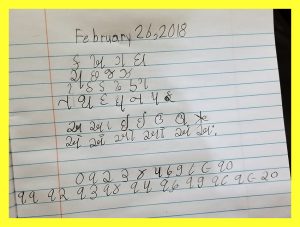 February 26, 2018
ક ખ ગ ઘ
ચ છ જ ઝ
ટ ઠ ડ ઢ ણ
ત થ દ ધ ન પ
અ આ ઇ ઈ ઉ ઊ
એ ઐ ઓ ઔ અં
૦ ૧ ૨ ૩ ૪ ૫ ૬ ૭ ૮ ૯ ૧૦
૧૧ ૧૨ ૧૩ ૧૪ ૧૫ ૧૬ ૧૭ ૧૮ ૧૯ ૨૦